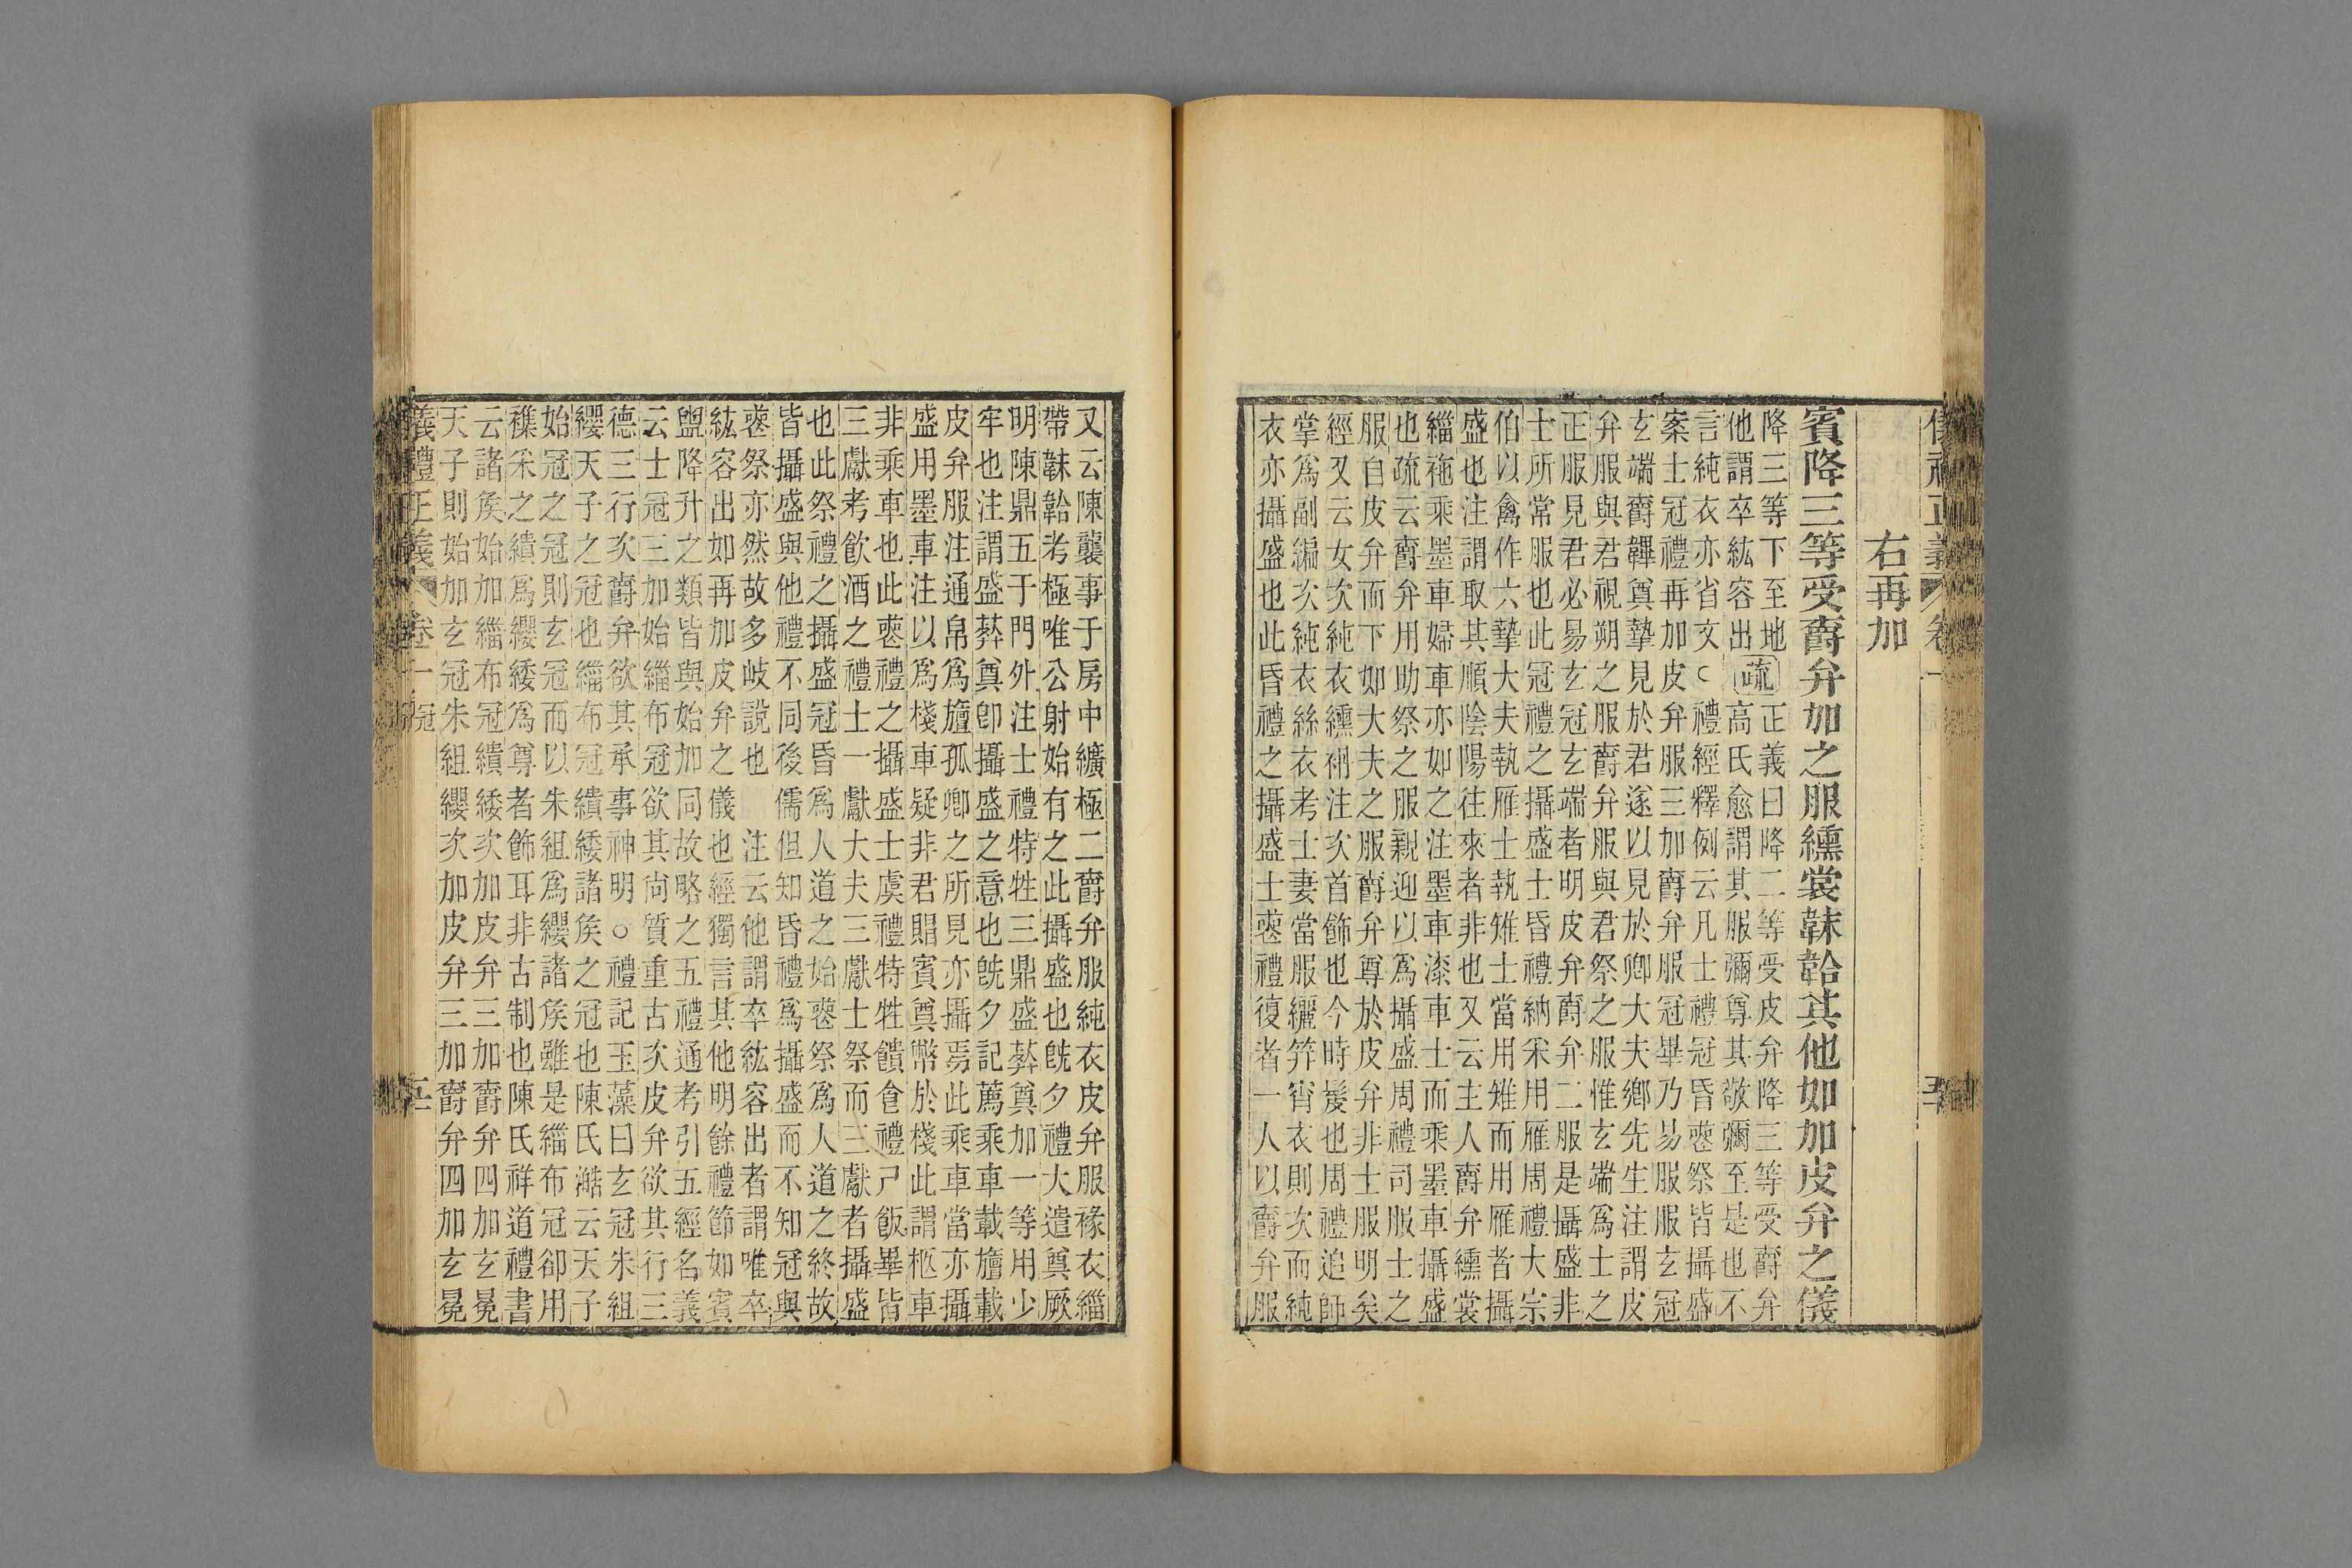 儀禮正義 卷一
右再加
賓降三等受爵弁加之服纁裳韎韐其他如加皮弁之儀
降三等下至地
他謂卒紘容出
疏
正義曰降二等受皮弁降三等受爵弁
高氏愈謂其服彌尊其敬彌至是也不
言純衣亦省文○禮經釋例云凡士禮冠昏喪祭皆攝盛
案士冠禮再加皮弁服三加爵弁服冠畢乃易服服玄冠
玄端爵韠奠摯見於君遂以見於卿大夫鄉先生注謂皮
弁服與君視朔之服爵弁服與君祭之服惟玄端爲士之
正服見君必易玄冠玄端者明皮弁爵弁二服是攝盛非
士所常服也此冠禮之攝盛士昏禮納采用雁周禮大宗
伯以禽作六摯大夫執雁士執雉士當用雉而用雁者攝
盛也注謂取其順陰陽往來者非也又云主人爵弁纁裳
緇袘乘墨車婦車亦如之注墨車漆車士而乘墨車攝盛
也疏云爵弁用助祭之服親迎以爲攝盛周禮司服士之
服自皮弁而下如大夫之服爵弁尊於皮弁非士服明矣
經又云女次純衣纁袡注次首飾也今時髲也周禮追師
掌爲副編次純衣絲衣考士妻當服纚笄宵衣則次而純
衣亦攝盛也此昏禮之攝盛士喪禮復者一人以爵弁服
又云陳襲事于房中纊極二爵弁服純衣皮弁服褖衣緇
帶韎韐考極唯公射始有之此攝盛也旣夕禮大遣奠厥
明陳鼎五于門外注士禮特牲三鼎盛葬奠加一等用少
牢也注謂盛葬奠卽攝盛之意也旣夕記薦乘車載旜載
皮弁服注通帛爲旜孤卿之所見亦攝焉此乘車當亦攝
盛用墨車注以爲棧車疑非君賵賓奠幣於棧此謂柩車
非乘車也此喪禮之攝盛士虞禮特牲饋食禮尸飯畢皆
三獻考飲酒之禮士一獻大夫三獻士祭而三獻者攝盛
也此祭禮之攝盛冠昏爲人道之始喪祭爲人道之終故
皆攝盛與他禮不同後儒但知昏禮爲攝盛而不知冠與
喪祭亦然故多岐說也　注云他謂卒紘容出者謂唯卒
紘容出如再加皮弁之儀也經獨言其他明餘禮節如賓
盥降升之類皆與始加同故略之五禮通考引五經名義
云士冠三加始緇布冠欲其尙質重古次皮弁欲其行三
德三行次爵弁欲其承事神明○禮記玉藻曰玄冠朱組
纓天子之冠也緇布冠繢緌諸侯之冠也陳氏澔云天子
始冠之冠則玄冠而以朱組爲纓諸侯雖是緇布冠卻用
襍采之繢爲纓緌爲尊者飾耳非古制也陳氏祥道禮書
云諸侯始加緇布冠繢緌次加皮弁三加爵弁四加玄冕
天子則始加玄冠朱組纓次加皮弁三加爵弁四加玄冕
儀禮正義 卷一 冠